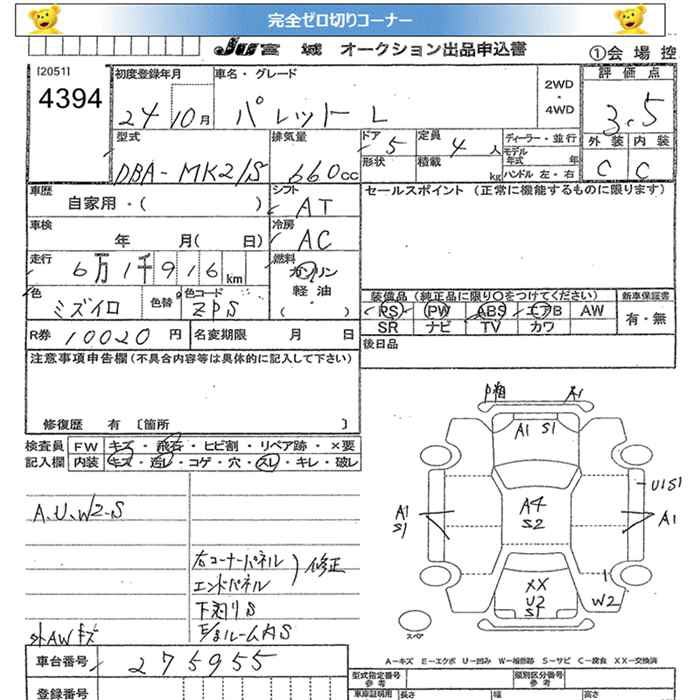 完全ゼロ切りコーナー
JU宮城 オークション出品申込書 ①会場控
[2051]
4394
初度登録年月 車名・グレード 2WD・4WD 評価点
24 10月 パレット L 3.5
型式 排気量 ドア 5 定員 4人 ディーラー・並行 外装 内装
DBA-MK21S 660cc 形状 積載 kg モデル年式 年 ハンドル 左・右 C C
車歴 シフト セールスポイント(正常に機能するものに限ります)
自家用・( ) AT
車検 冷房
年 月( 日) AC
走行 燃料
6万1千916km ガソリン
軽油・
( )
色 色替 色コード 装備品(純正品に限り○をつけてください) 新車保証書
ミズイロ ZPS PS PW ABS エアB AW 有・無
SR ナビ TV カワ
R券 10020円 名変期限 月 日 後日品
注意事項申告欄(不具合内容等は具体的に記入して下さい)
修復歴 有〔箇所 〕
検査員 FW キズ・飛石・ヒビ割・リペア跡・×要
記入欄 内装 キズ・汚レ・コゲ・穴・スレ・キレ・破レ
A1 A1 S1
U1S1
A1 S1 A4 S2 A1
XX U2 S1 W2
スペア
A.U.W2.S
右コーナーパネル
エンドパネル
修正
下廻りS
外AWキズ
A-キズ E-エクボ U-凹み W-補修跡 S-サビ C-腐食 XX-交換済
車台番号 275955
型式指定番号 参考 類別区分番号 参考
登録番号 車庫証明用 長さ 幅 高さ